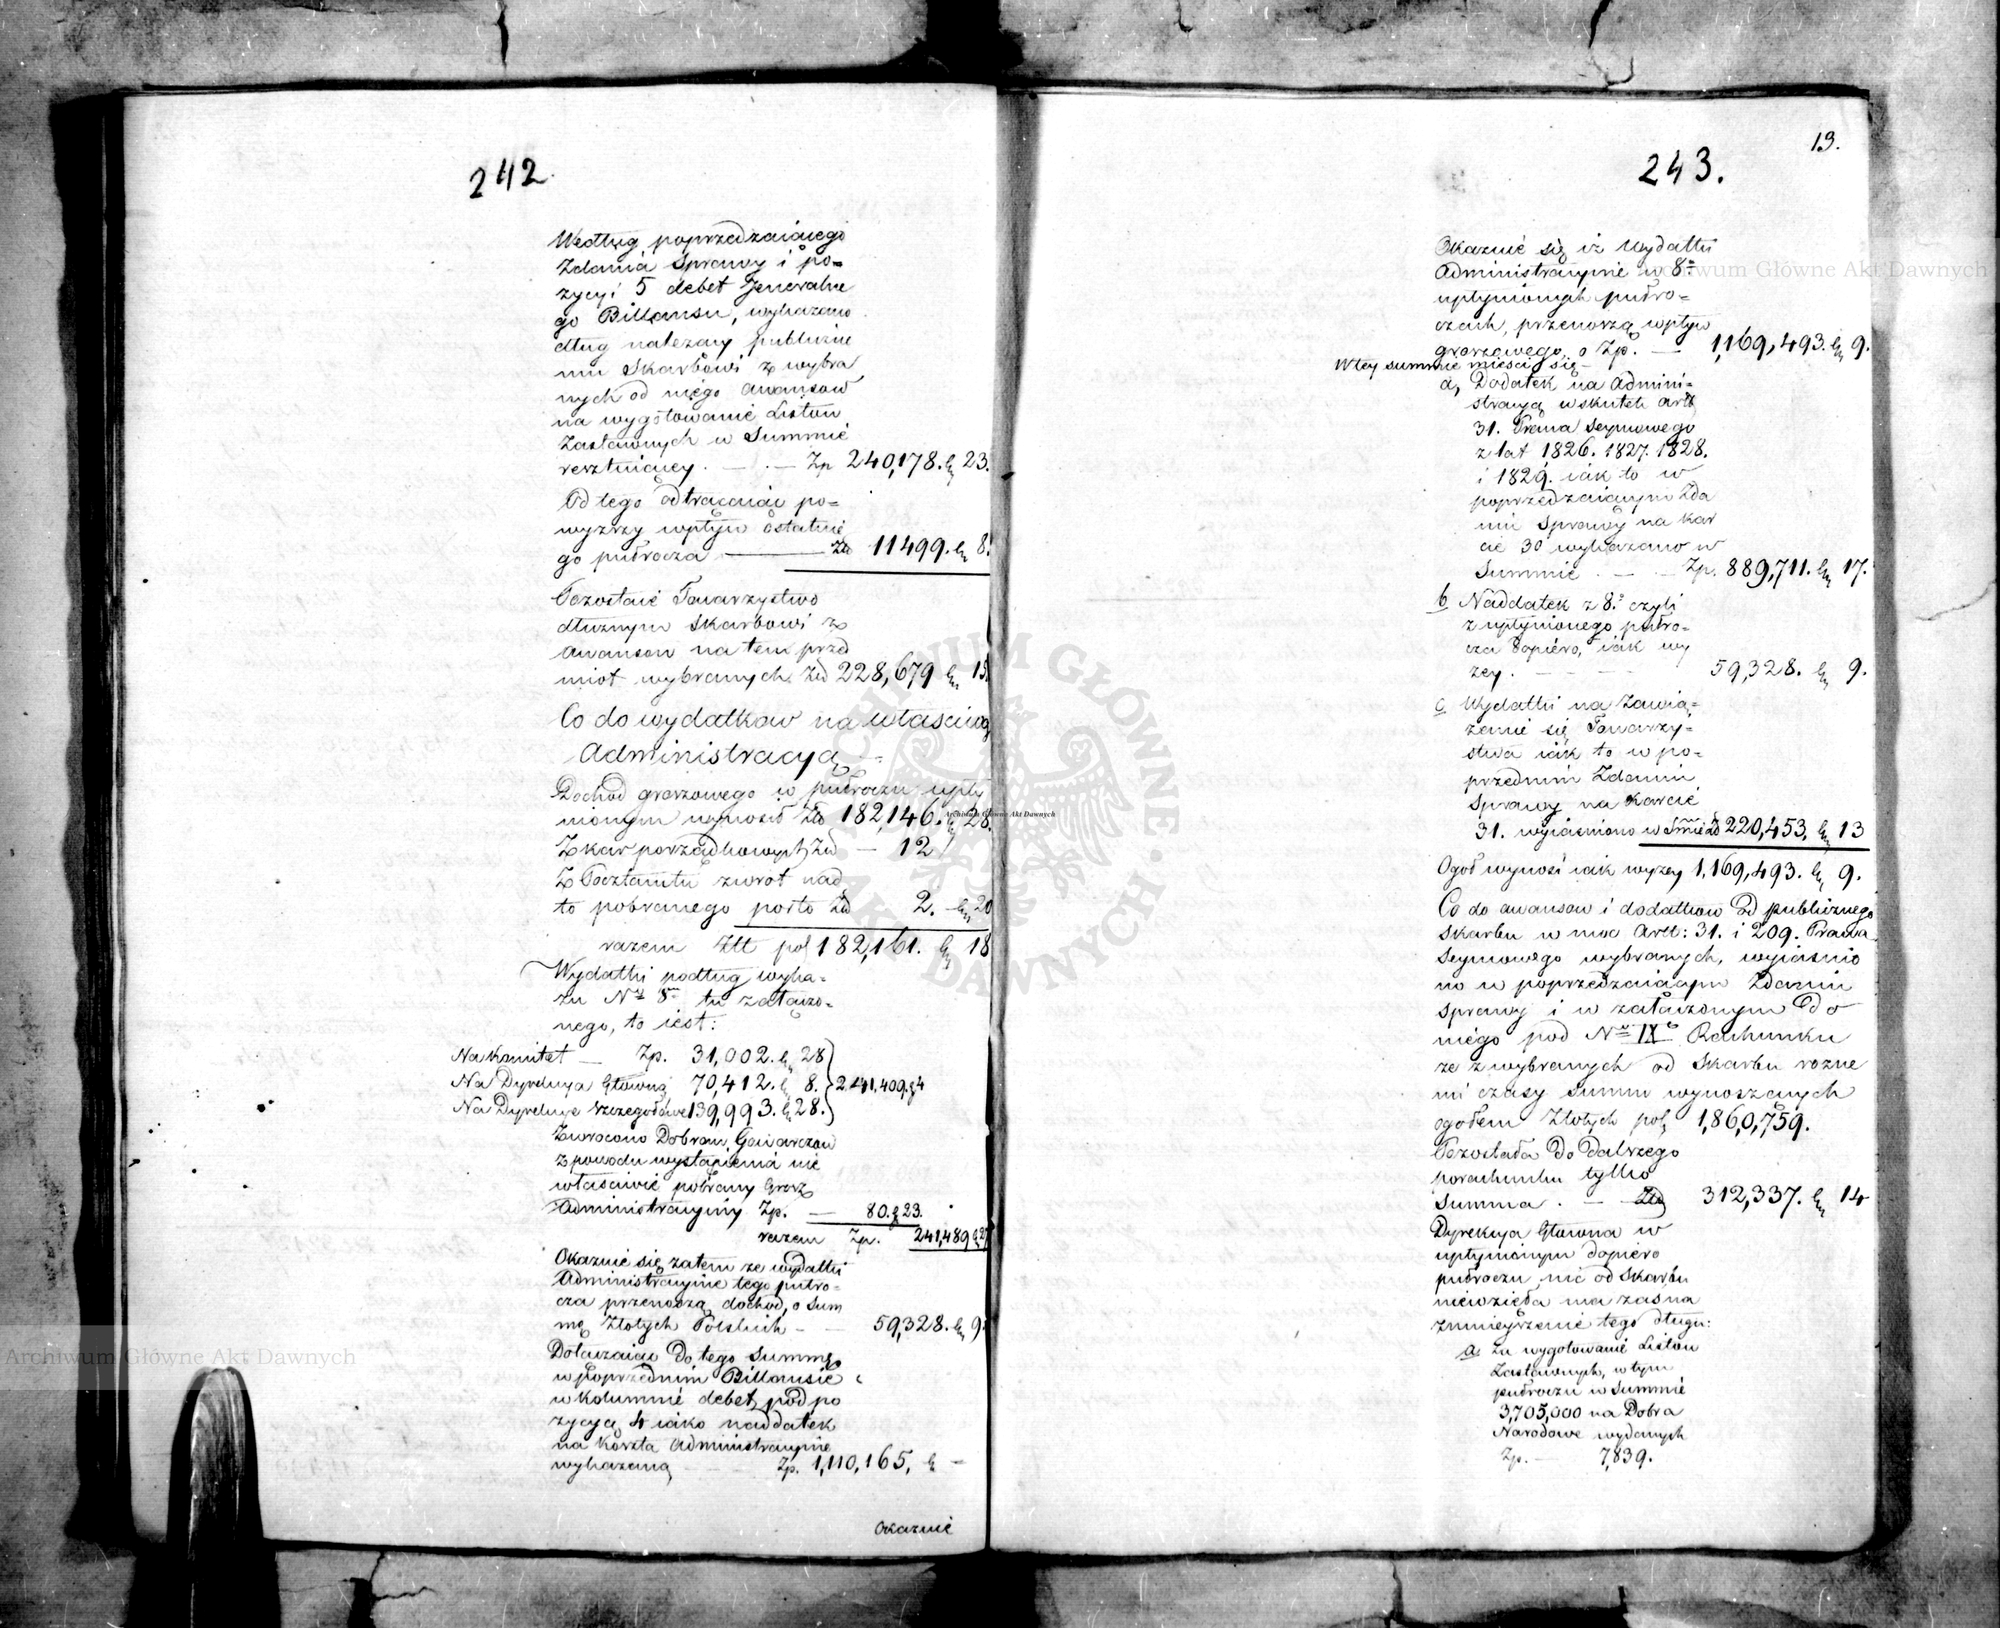 242
Według poprzedzaiącego
Zdania Sprawy i po=
zycyi 5 debet Generalne
go Billansu, wykazano
dług należny publicznе
mu Skarbowi z wybra
nych od niego awansow
na wygotowanie Listow
Zastawnych w Summie
resztuiącey . — . — Zp 240,178. gr 23.
Od tego odtrącaiąc po=
wyższy wpływ ostatnie
go pułrocza — Zł 11499. gr 8.
Pozostaie Towarzystwo
dłużnym Skarbowi z
awansow na ten przed
miot wybranych Zł 228,679 gr 15.
Co do wydatkow na właściwą
Administracyą =
Dochod groszowego w pułroczu upły
nionym wynosił Zł 182,146. gr 28.
Z kar porządkowych Zł — 12
Z Pocztamtu zwrot nad
to pobranego porto Zł 2. gr 20
razem Złt pol 182,161. gr 18
Wydatki podług wyka=
zu Nro 8m tu załączo=
nego, to iest:
Na Komitet — Zp. 31,002. gr 28
Na Dyrekcya Główną 70,412. gr 8. 241,409. g 4
Na Dyrekcye szczegołowe 139,993. gr 28.
Zwrocono Dobrom Garwarczow
z powodu wystąpienia nie
właściwie pobrany Grosz
Administracyiny Zp. — 80. g 23.
razem Zp. 241,489 g 27
Okazuie się zatem ze wydatki
Administracyine tego pułro=
cza przenoszą dochod, o Sum
mę Złotych Polskich — 59,328. gr 9.
Dołączaiąc do tego Summę
w poprzednim Billansie
w kolumnie debet, pod po
zycyą 4 iako naddatek
na koszta Administracyine
wykazaną — Zp. 1,110,165, g —
Okazuie
13.
243.
Okazuie się iż Wydatki
Administracyine w 8u
upłynionych pułro=
czach, przenoszą wpływ
groszowego, o Zp. — 1,169,493. gr 9.
W tey summie mieści się
a, Dodatek na Admini=
stracyą w skutek art
31. Prawa Seymowego
z lat 1826. 1827. 1828.
i 1829. iak to w
poprzedzaiącym Zda
niu Sprawy na kar
cie 30 wykazano w
Summie . — . — Zp. 889,711. gr 17.
b Naddatek z 8o czyli
z upłynionego pułro=
cza dopiero, iak wy
zey . — — — 59,328. gr 9.
c Wydatki na Zawią=
zanie się Towarzy=
stwa iak to w po=
przednim Zdaniu
Sprawy na karcie
31. wyiaśniono w Smie Zł 220,453, gr 13
Ogoł wynosi iak wyzey 1,169,493. gr 9.
Co do awansow i dodatkow od publicznego
Skarbu w moc Artt: 31. i 209. Prawa
Seymowego wybranych, wyiaśnio
no w poprzedzaiącym Zdaniu
Sprawy i w załączonym do
niego pod Nro IX Rachunku
ze z wybranych od Skarbu rozne
mi czasy summ wynoszących
ogołem Złotych pol 1,860,759.
Pozostała do dalszego
porachunku tylko
Summa . — Zł 312,337. gr 14
Dyrekcya Głowna w
upłynionym dopiero
pułroczu, nic od Skarbu
niewzięła ma zaś na
zmnieyszenie tego długu:
a za wygotowanie Listow
Zastawnych, w tym
pułroczu w Summie
3,705,000 na Dobra
Narodowe wydanych
Zp. — 7,839.
Archiwum Główne Akt Dawnych
ARCHIWUM GŁÓWNE
AKT DAWNYCH
Archiwum Główne Akt Dawnych
Archiwum Główne Akt Dawnych